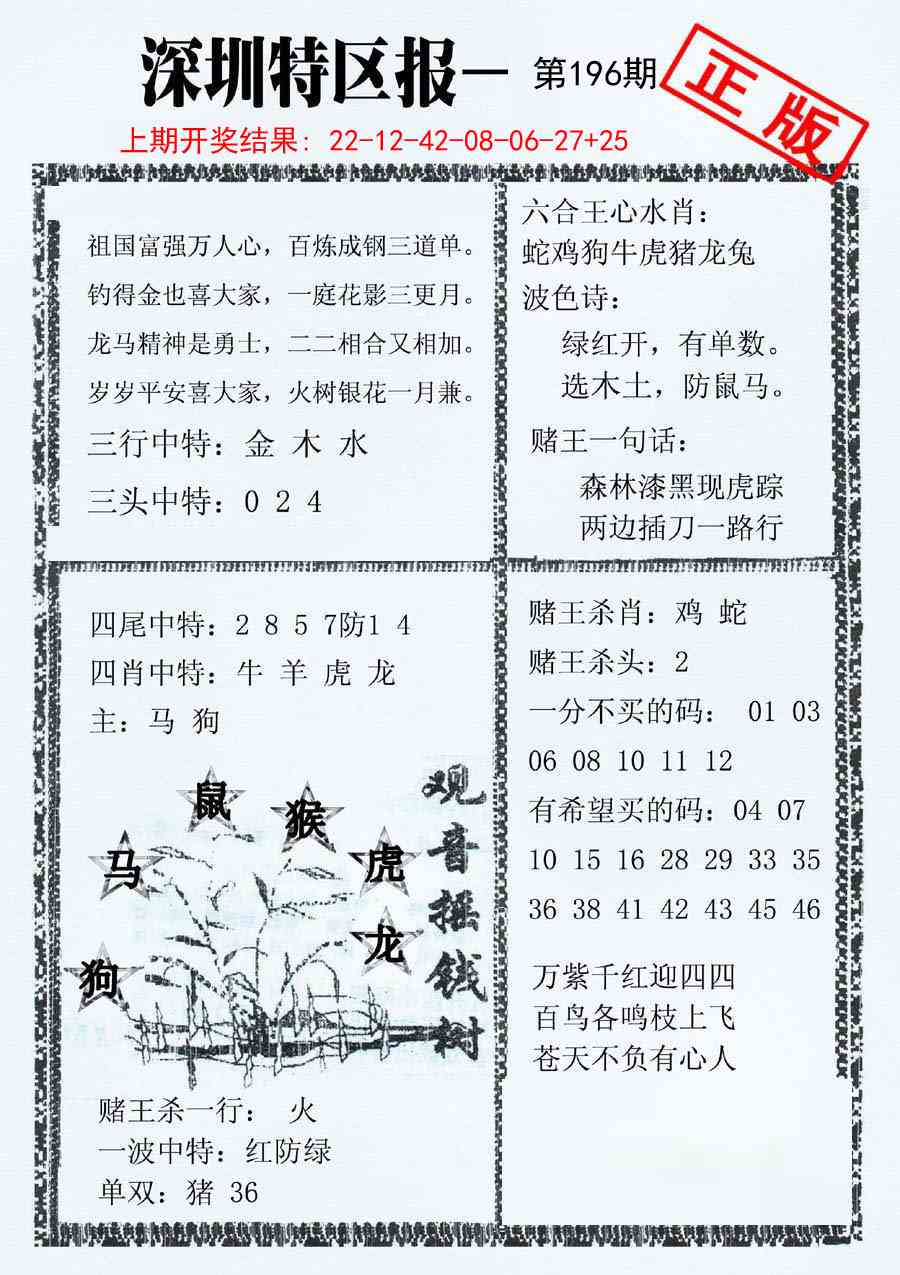 深圳特区报— 第196期
正版
上期开奖结果: 22-12-42-08-06-27+25
祖国富强万人心，百炼成钢三道单。
钓得金也喜大家，一庭花影三更月。
龙马精神是勇士，二二相合又相加。
岁岁平安喜大家，火树银花一月兼。
三行中特: 金 木 水
三头中特: 0 2 4
六合王心水肖:
蛇鸡狗牛虎猪龙兔
波色诗:
绿红开，有单数。
选木土，防鼠马。
赌王一句话:
森林漆黑现虎踪
两边插刀一路行
四尾中特: 2 8 5 7防1 4
四肖中特: 牛 羊 虎 龙
主: 马 狗
鼠
猴
马
虎
龙
狗
观音摇钱树
赌王杀一行: 火
一波中特: 红防绿
单双: 猪 36
赌王杀肖: 鸡 蛇
赌王杀头: 2
一分不买的码: 01 03
06 08 10 11 12
有希望买的码: 04 07
10 15 16 28 29 33 35
36 38 41 42 43 45 46
万紫千红迎四四
百鸟各鸣枝上飞
苍天不负有心人